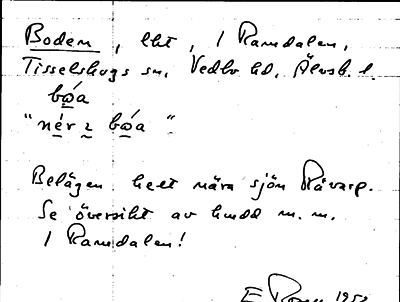 Boden, lht, i Ramdalen,
Tisselskogs sn, Vedbo hd, Älvsb. l.
bǿa
"nér i bǿa"
Belägen helt nära sjön Råvarp.
Se översikt av hudd m. m.
i Ramdalen!
E 195